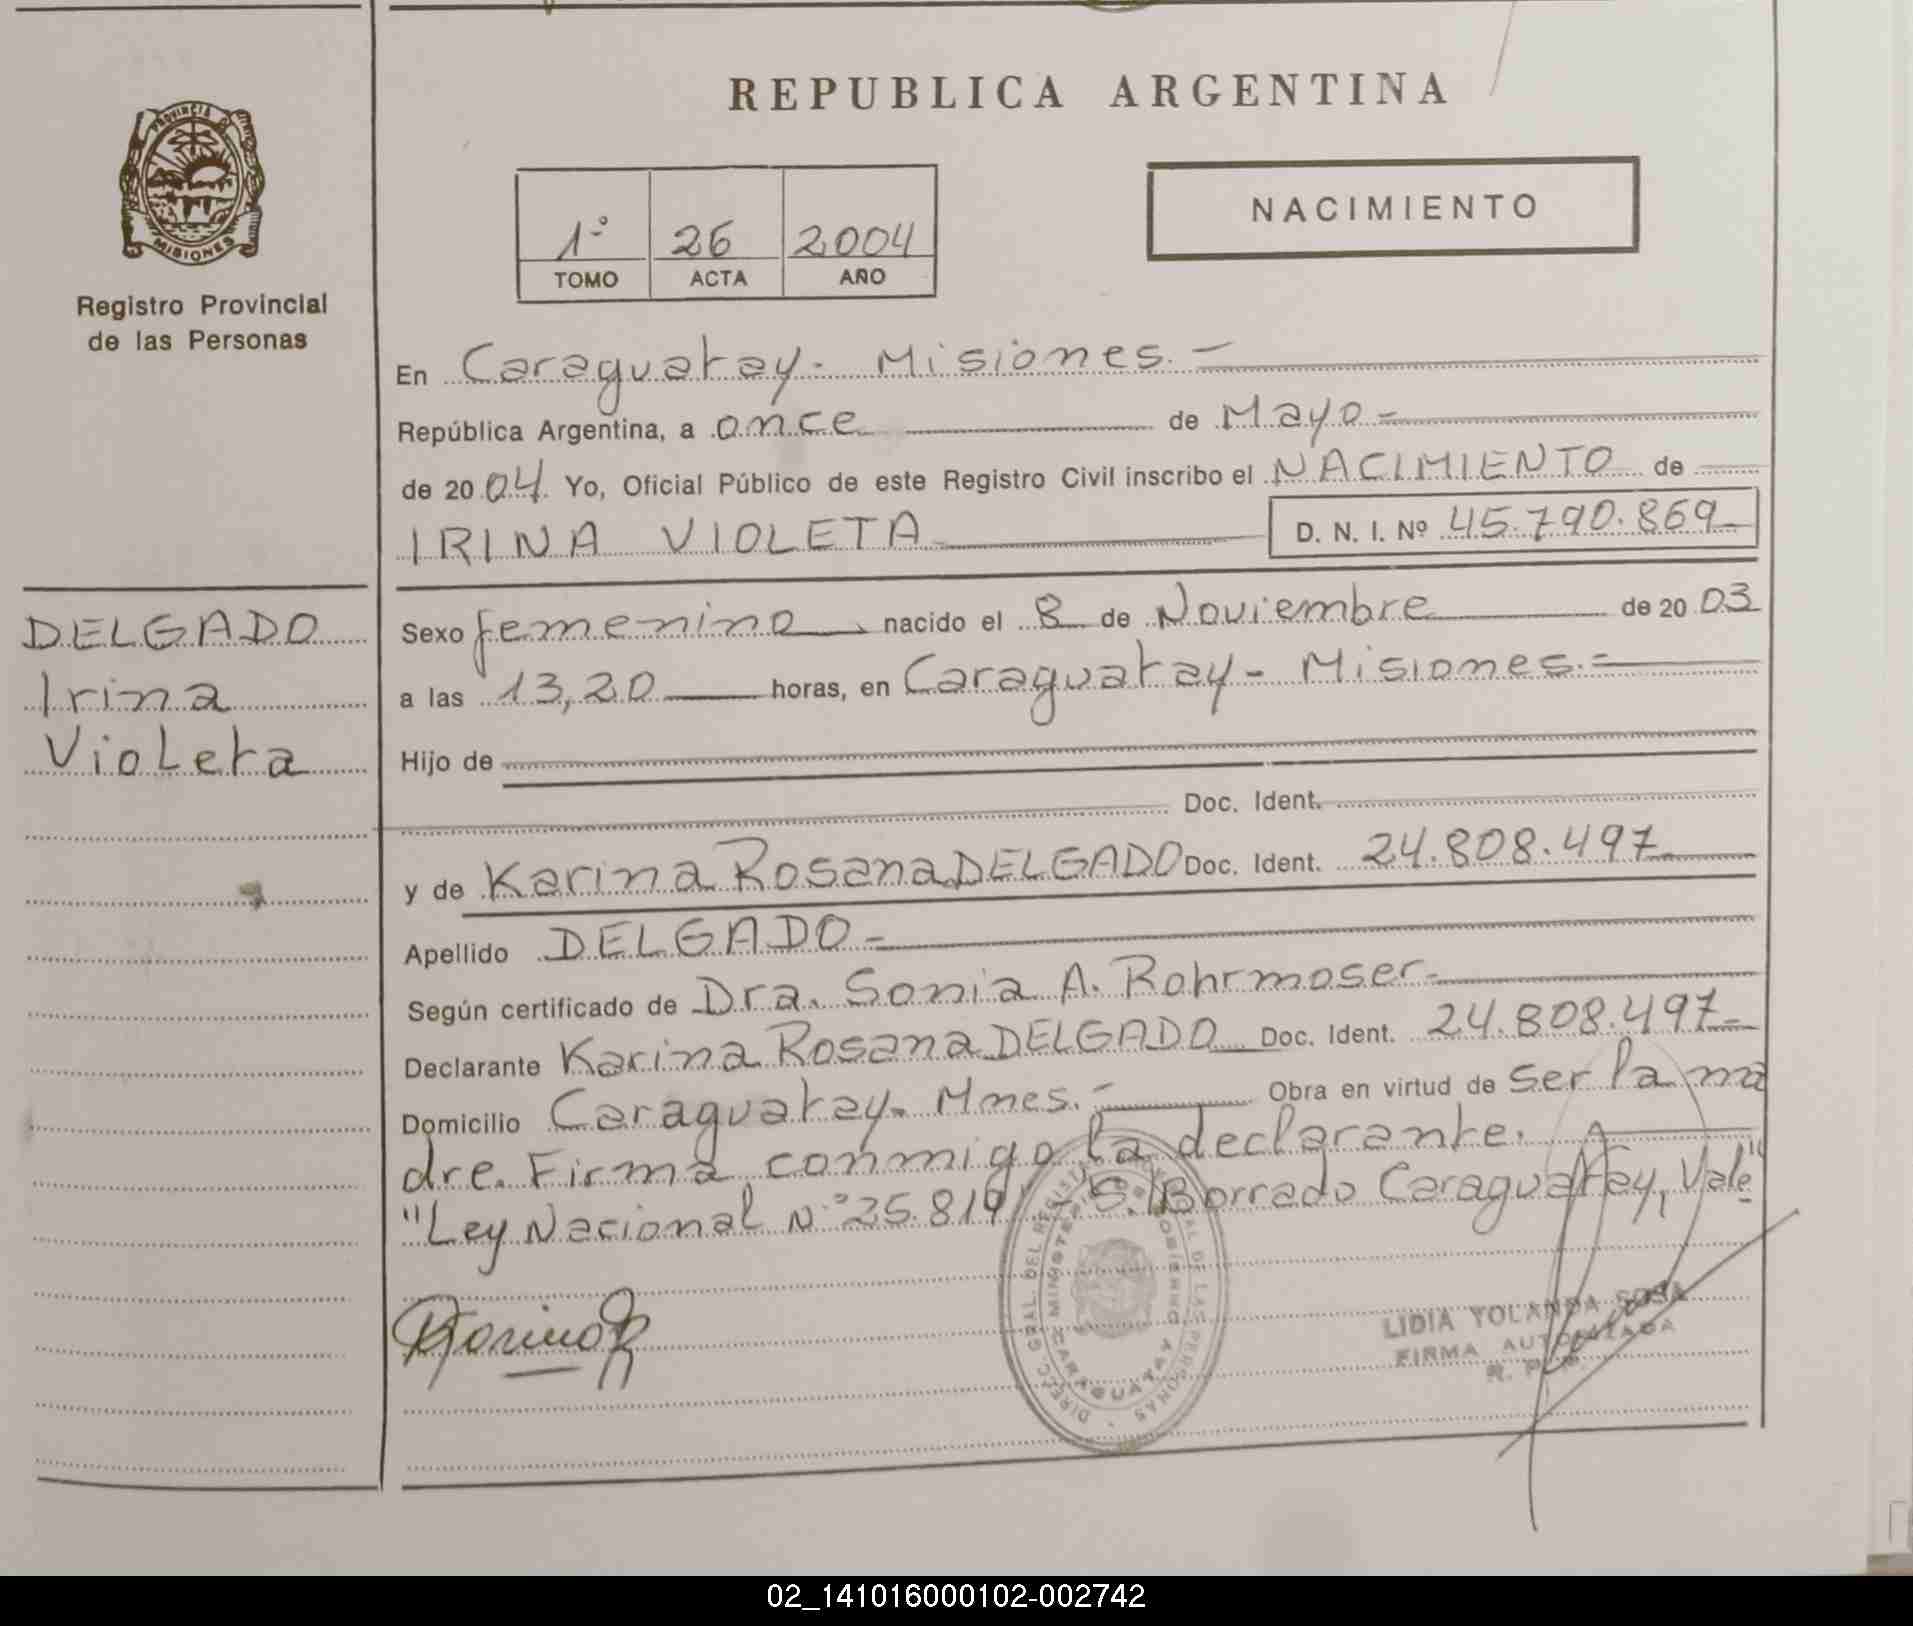 REPUBLICA ARGENTINA
PROVINCIA DE MISIONES
Registro Provincial
de las Personas
1º 26 2004
TOMO ACTA AÑO
NACIMIENTO
En Caraguatay - Misiones.-
República Argentina, a once de Mayo -
de 2004. Yo, Oficial Público de este Registro Civil inscribo el NACIMIENTO de
IRINA VIOLETA D. N. I. Nº 45.790.869
DELGADO
Irina
Violeta
Sexo femenino nacido el 8 de Noviembre de 2003
a las 13,20 horas, en Caraguatay - Misiones.-
Hijo de
Doc. Ident.
y de Karina Rosana DELGADO Doc. Ident. 24.808.497
Apellido DELGADO -
Según certificado de Dra. Sonia A. Rohrmoser -
Declarante Karina Rosana DELGADO Doc. Ident. 24.808.497 -
Domicilio Caraguatay - Mnes.- Obra en virtud de ser la ma
dre. Firma conmigo la declarante.
"Ley Nacional Nº 25.819" - S/Borrado Caraguatay, Vale
DIREC. GRAL. DEL REGISTRO PROVINCIAL DE LAS PERSONAS
MINISTERIO DE GOBIERNO
CARAGUATAY
LIDIA YOLANDA SOSA
FIRMA AUTORIZADA
R. P. P.
02_141016000102-002742